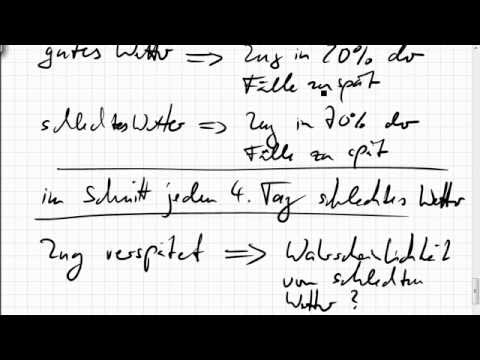 gutes Wetter ⇒ Zug in 20% der
Fälle zu spät
schlechtes Wetter ⇒ Zug in 70% der
Fälle zu spät
im Schnitt jeden 4. Tag schlechtes Wetter
Zug verspätet ⇒ Wahrscheinlichkeit
von schlechtem
Wetter?